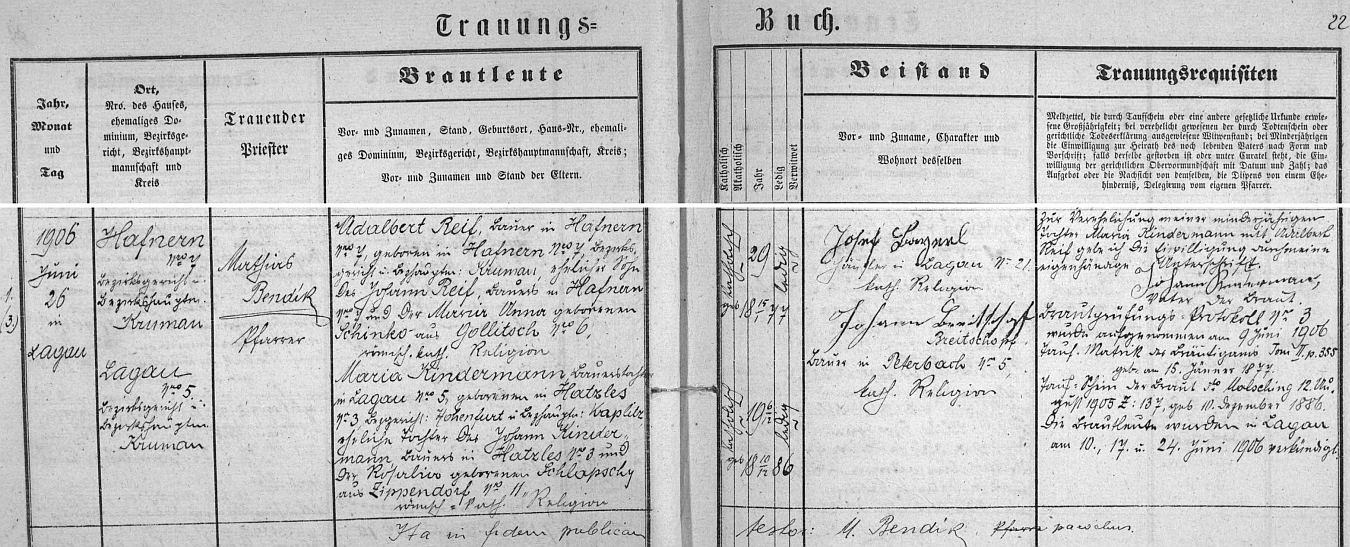 Trauungs=
Buch.
22
Jahr,
Monat
und
Tag
Ort,
Nro. des Hauses,
ehemaliges Do-
minium, Bezirksge-
richt, Bezirkshaupt-
mannschaft und
Kreis
Trauender
Priester
Brautleute
Vor- und Zunamen, Stand, Geburtsort, Haus-Nr., ehemali-
ges Dominium, Bezirksgericht, Bezirkshauptmannschaft, Kreis;
Vor- und Zunamen und Stand der Eltern.
Katholisch
Akatholisch
Jahr
Ledig
Verwitwet
Beistand
Vor- und Zuname, Charakter und
Wohnort desselben
Trauungsrequisiten
Meldzettel, die durch Taufschein oder eine andere gesetzliche Urkunde erwie-
sene Großjährigkeit; bei verehelicht gewesenen der durch Todtenschein oder
gerichtliche Todeserklärung ausgewiesene Witwenstand; bei Minderjährigen
die Einwilligung zur Heirath des noch lebenden Vaters nach Form und
Vorschrift; falls derselbe gestorben ist oder unter Curatel steht, die Ein-
willigung der gerichtlichen Obervormundschaft mit Datum und Zahl; das
Aufgebot oder die Nachsicht von demselben, die Dispens von einem Ehe-
hinderniß, Delegirung vom eigenen Pfarrer.
1.
(3)
1906
Juni
26
in
Lagau
Hafnern
No 7
Bezirksgericht u.
Bezirkshauptm.
Krumau
Lagau
No 5.
Bezirksgericht u.
Bezirkshauptm.
Krumau
Mathias
Bendík
Pfarrer
Adalbert Reif, Bauer in Hafnern
No 7, geboren in Hafnern No 7, Bezirks-
gericht u. Bezhauptm: Krumau, ehelicher Sohn
des Johann Reif, Bauers in Hafnern
No 7 und der Maria Anna geborenen
Schinko aus Gollitsch No 6,
römisch-kath. Religion
Maria Kindermann, Bauerstochter
in Lagau No 5, geborenen in Hatzles
No 3, Bezgericht: Hohenfurt u Bezhauptm: Kaplitz
eheliche Tochter des Johann Kinder-
mann, Bauers in Hatzles No 3 und
der Rosalia geborenen Schlapschy
aus Lippendorf No 11,
römisch-kath. Religion
Ita in fidem publicam
katholisch
29
ledig
geb 18 15/1 77
katholisch
19 6/12
ledig
geb 18 10/12 86
Josef
Häusler in Lagau No 21.
kath. Religion
Johann Breitschopf
Breitschopf
Bauer in Peterbach No 5.
kath. Religion
testor: M. Bendík,
Zur Verehelichung meiner minderjährigen
Tochter Maria Kindermann mit Adalbert
Reif gebe ich die Einwilligung durch meine
eigenhändge Unterschrift.
Johann Kindermann,
Vater der Braut.
Brautprüfungs-Protokoll No 3
wurde aufgenommen am 9 Juni 1906
Tauf-Matrik des Bräutigams Tom II. p. 355
geb. am 15. Jänner 1877.
Tauf-Schein der Braut dto Malsching 12. Au-
gust 1905 Z: 137, geb 10. Dezember 1886.
Die Brautleute wurden in Lagau
am 10., 17. u. 24. Juni 1906 verkündigt.